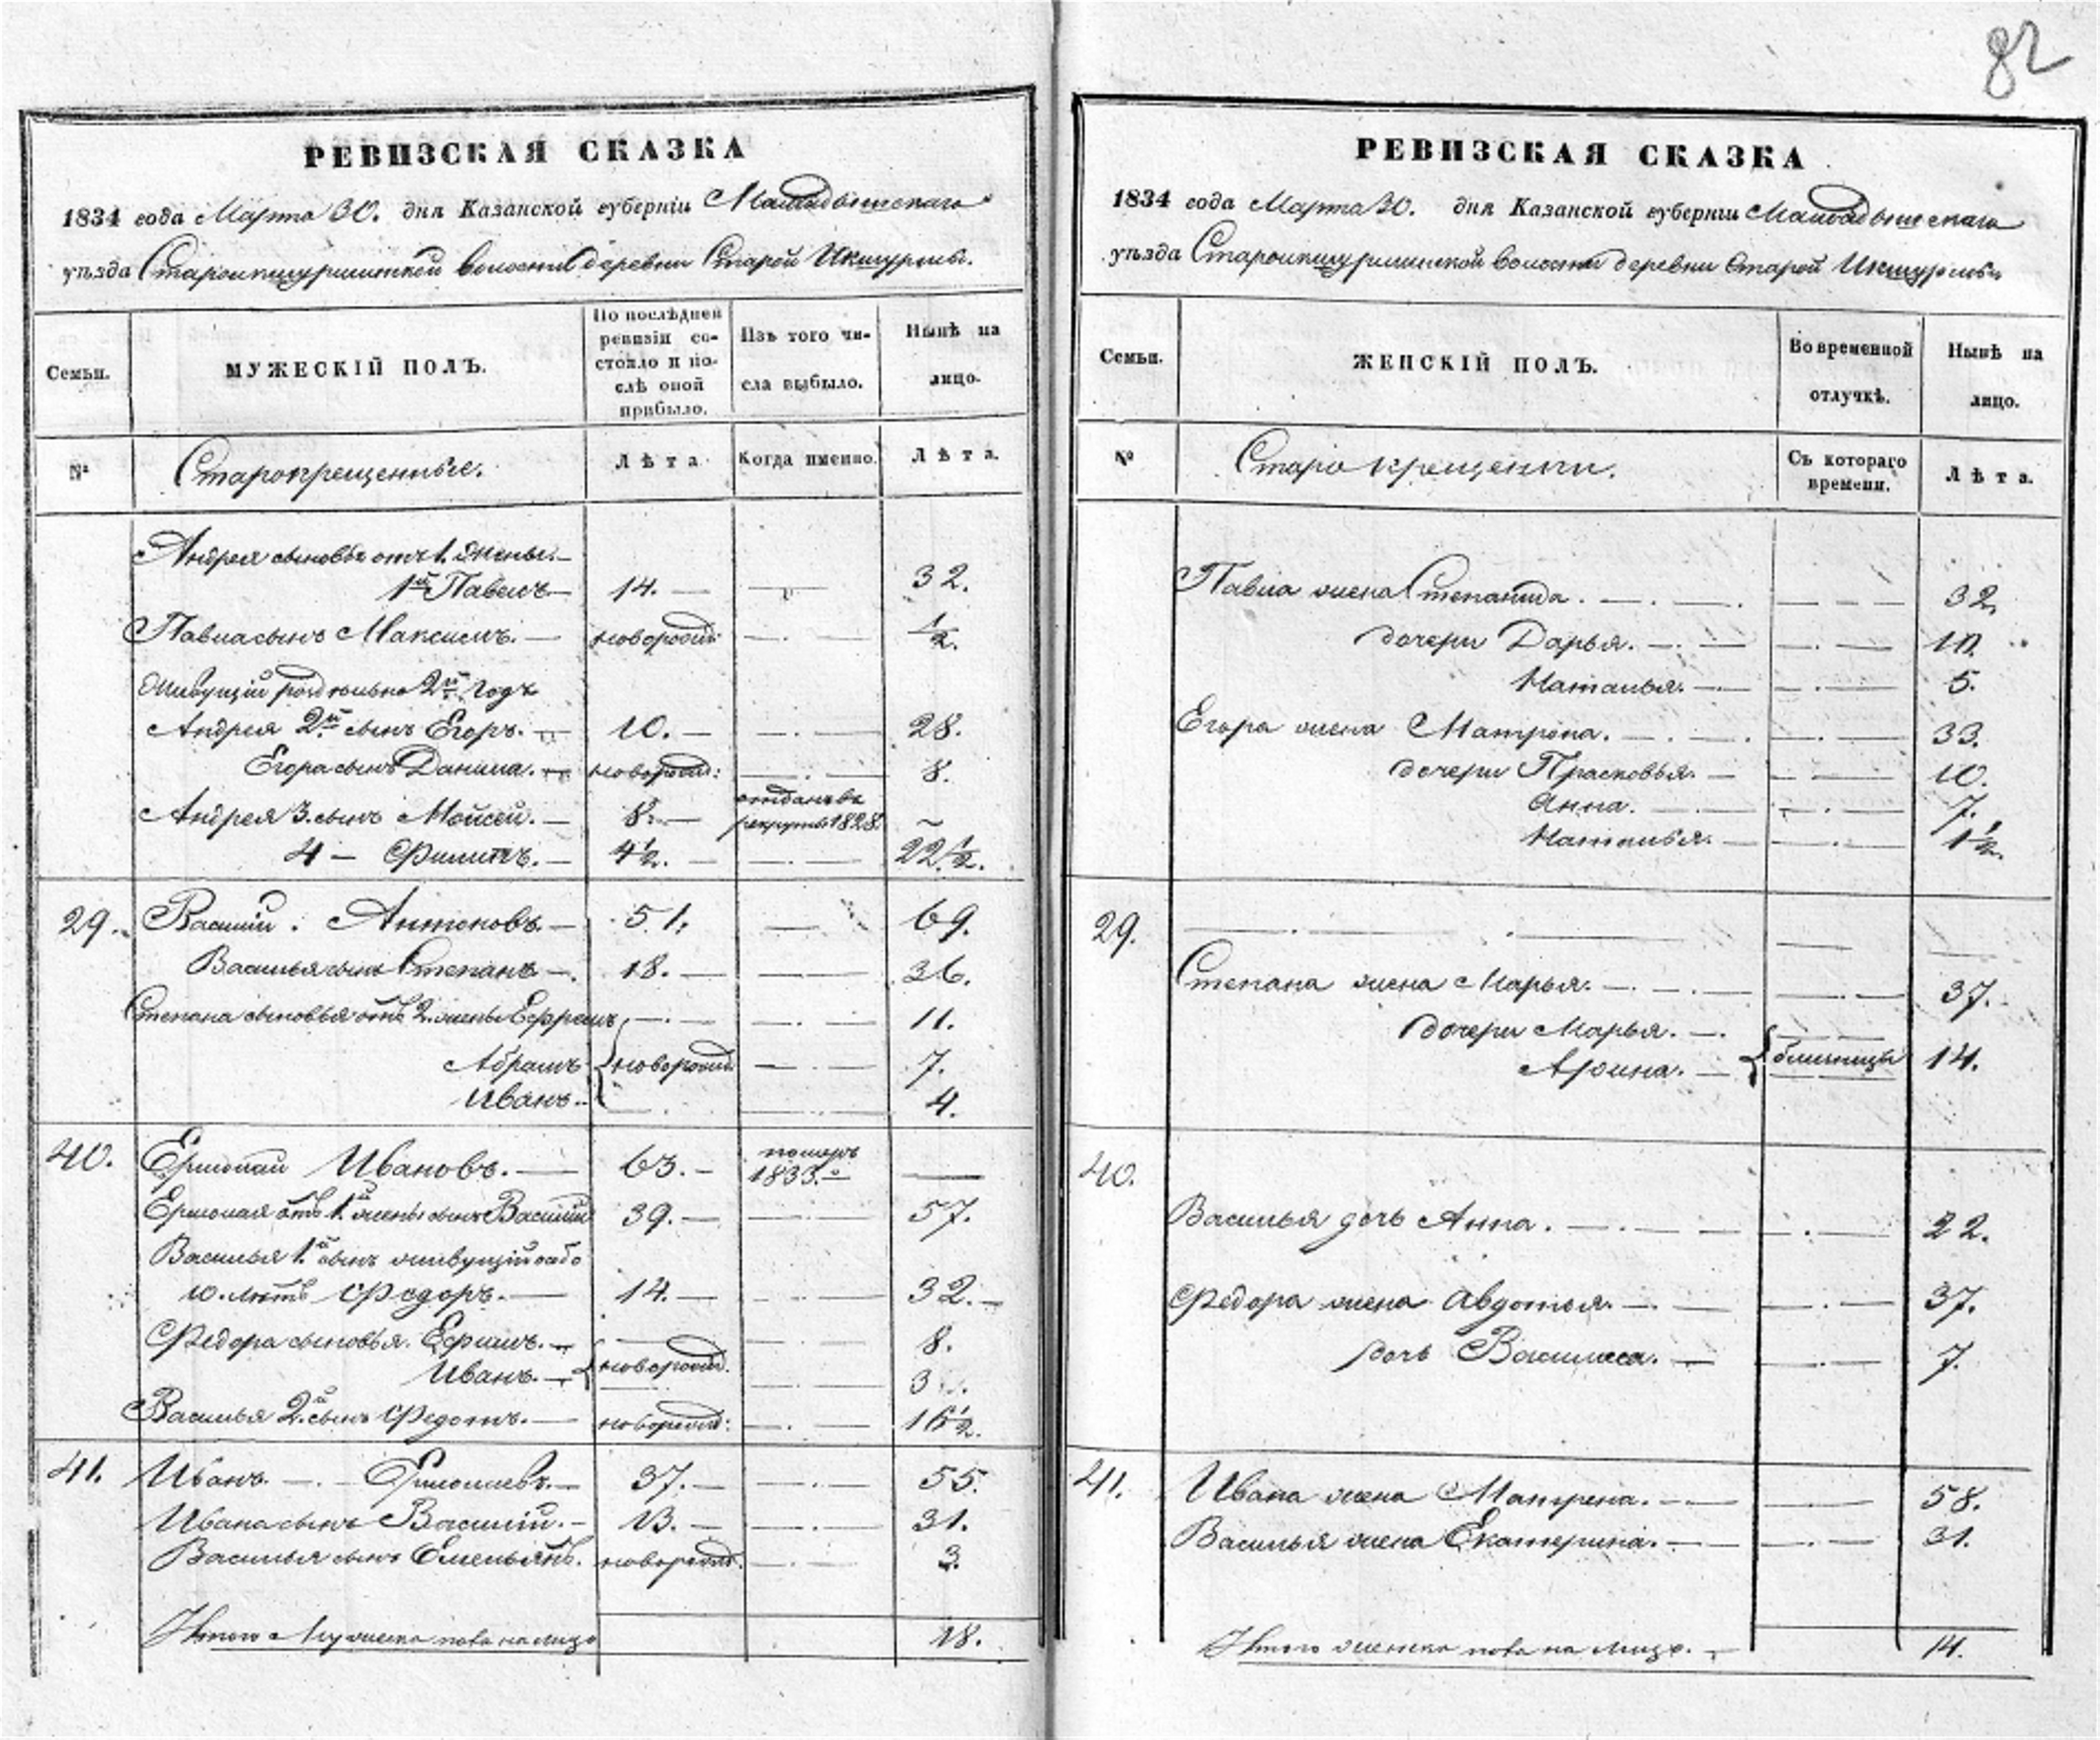 82
РЕВИЗСКАЯ СКАЗКА
1834 года Марта 30. дня Казанской губерніи Мамадышскаго
уѣзда Староикшурминской волости деревни Старой Икшурмы.
Семьи.
МУЖЕСКІЙ ПОЛЪ.
По послѣдней ревизіи состояло и послѣ оной прибыло.
Изъ того числа выбыло.
Нынѣ на лицо.
№
Старокрещенные.
Лѣта
Когда именно.
Лѣта.
Андрея сыновья отъ 1. жены.
1й Павелъ 14. — 32.
Павла сынъ Максимъ. — новорожд: — 1/2.
живущій раздѣльно 2й годъ
Андрея 2й сынъ Егоръ. — 10. — 28.
Егора сынъ Данила. — новорожд: — 8.
Андрея 3. сынъ Мойсей. — 8. — отданъ въ рекруты 1828. —
4 — Филипъ. — 4 1/2. — 22 1/2.
29. Василій. Антоновъ. — 51. — 69.
Василья сынъ Степанъ — 18. — 36.
Степана сыновья отъ 2. жены Ефремъ — 11.
Абрамъ новорожд. — 7.
Иванъ. — 4.
40. Ермолай Ивановъ. — 63. — померъ 1833. —
Ермолая отъ 1й жены сынъ Василій 39. — 57.
Василья 1й сынъ живущій особо
10. лѣтъ Федоръ. — 14. — 32. —
Федора сыновья. Ефимъ. — 8.
Иванъ. — новорожд. — 3
Василья 2й сынъ Федотъ. — новорожд: — 16 1/2.
41. Иванъ. — Ермолаевъ. — 37. — 55.
Ивана сынъ Василій. — 13. — 31.
Василья сынъ Емельянъ. новорожд. — 3.
Итого Мужеска пола на лицо 18.
РЕВИЗСКАЯ СКАЗКА
1834 года Марта 30. дня Казанской губерніи Мамадышскаго
уѣзда Староикшурминской волости деревни Старой Икшурмы
Семьи.
ЖЕНСКІЙ ПОЛЪ.
Во временной отлучкѣ.
Нынѣ на лицо.
№
Старокрещенки.
Съ котораго времени.
Лѣта.
Павла жена Степанида. — 32.
дочери Дарья. — 10.
Наталья. — 5.
Егора жена Матрена. — 33.
дочери Прасковья. — 10.
Анна. — 7.
Наталья. — 1 1/2.
29. — — —
Степана жена Марья. — 37.
дочери Марья. —
Арина. — близнецы 14.
40.
Василья дочь Анна. — 22.
Федора жена Авдотья. — 37.
дочь Василиса. — 7.
41. Ивана жена Матрена. — 58.
Василья жена Екатерина. — 31.
Итого женска пола на лицо. — 14.